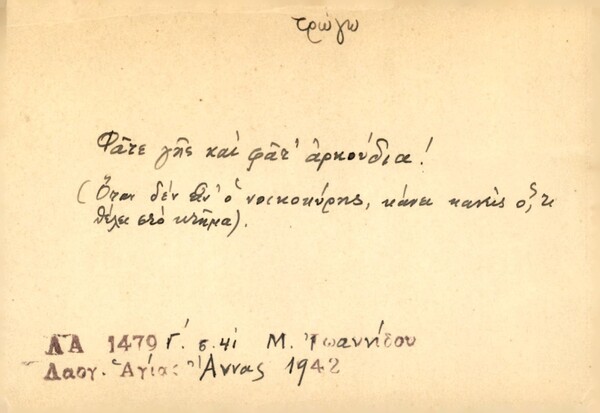 τρώγω
Φᾶτε γῆς καί φᾶτ' ἀρκούδια!
(Ὅταν δέν εἶν' ὁ νοικοκύρης, κάνει κανείς ὅ,τι
θέλει στό κτῆμα).
ΛΑ 1479 Γ΄. σ. 41 Μ. Ἰωαννίδου
Λαογ. Ἁγίας Ἄννας 1942